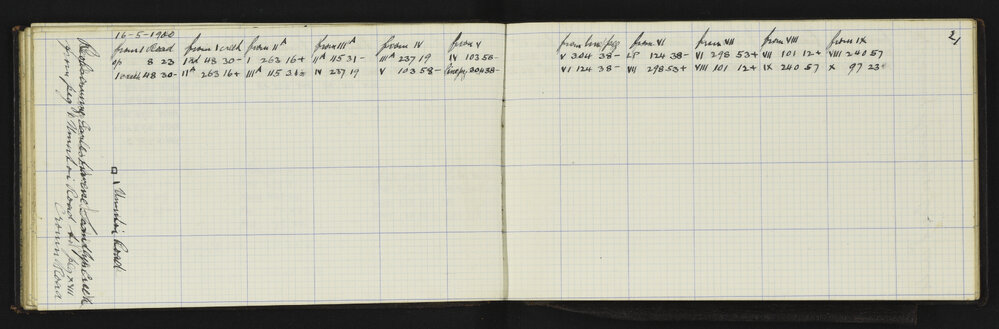 16-5-1920
from 1 Road from 1 creek from II^A from III^A from IV from V from line/peg from VI from VII from VIII from IX 21
op 8 23 1 Rd 48 30- I 263 16+ II^A 115 31- III^A 237 19 IV 103 58- V 304 38- LP 124 38- VI 298 53+ VII 101 12+ VIII 240 57
1 creek 48 30- II^A 263 16+ III^A 115 31- IV 237 19 V 103 58- line/peg 304 38- VI 124 38- VII 298 53+ VIII 101 12+ IX 240 57 X 97 23
Creek
from peg 1 Road to peg XVII
Cronin Road
1 Road